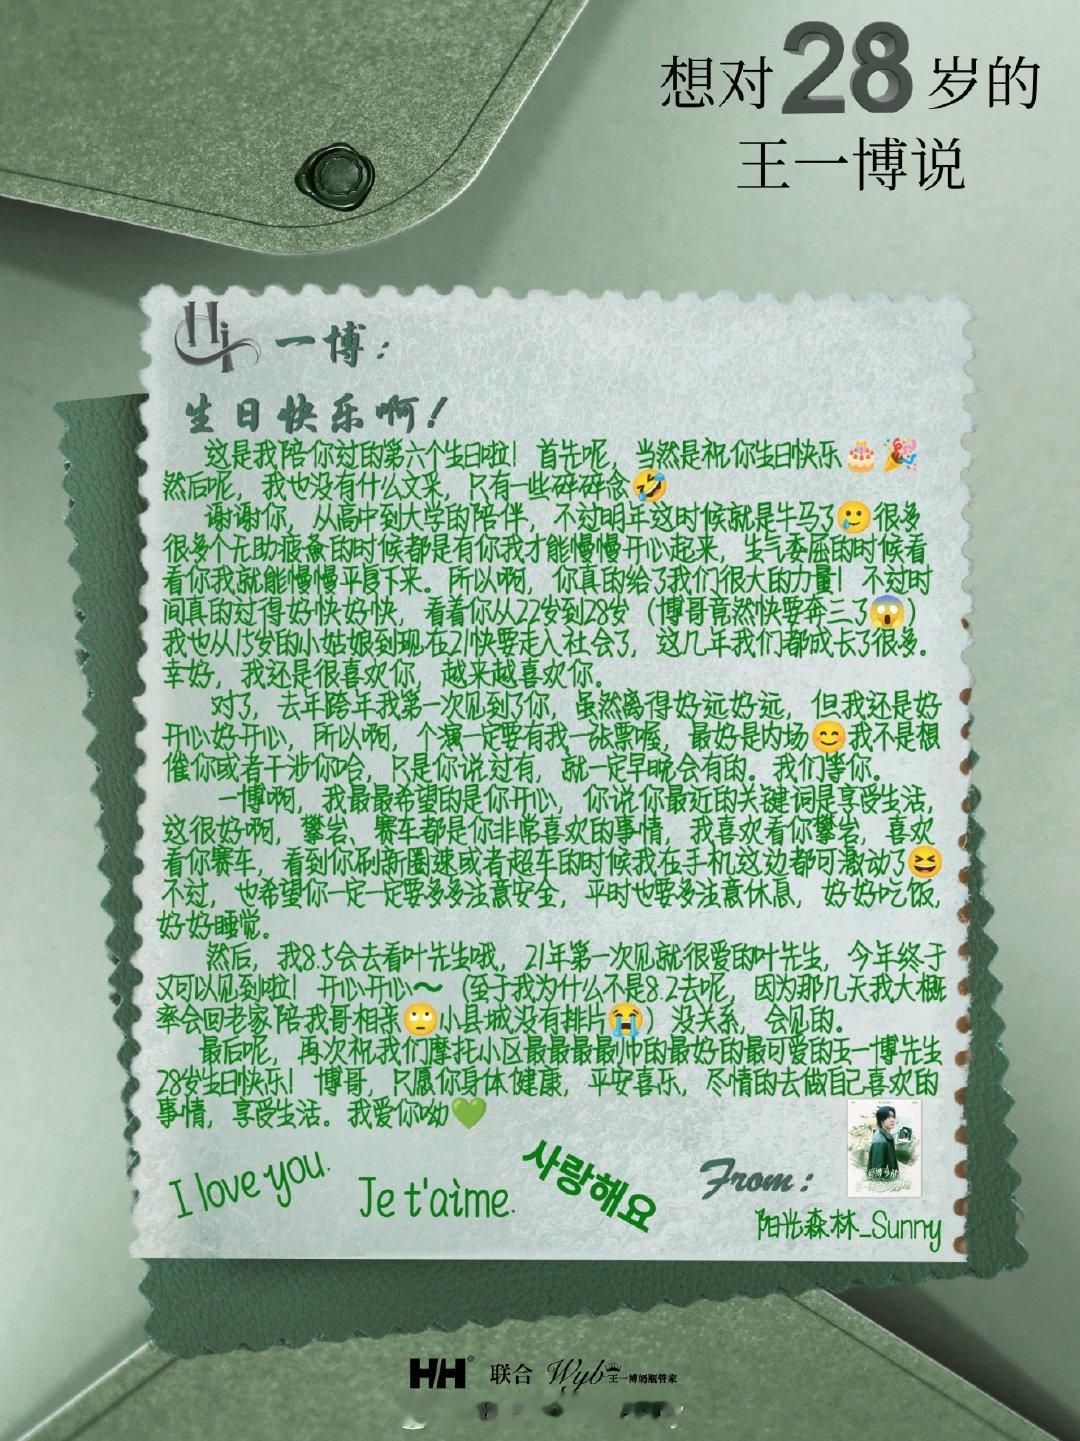 想对28岁的
王一博说
Hi 一博：
生日快乐啊！
这是我陪你过的第六个生日啦！首先呢，当然是祝你生日快乐🎂🎉
然后呢，我也没有什么文采，只有一些碎碎念🤣
谢谢你，从高中到大学的陪伴，不过明年这时候就是牛马了🥲很多
很多个无助疲惫的时候都是有你我才能慢慢开心起来，生气委屈的时候看
看你我就能慢慢平复下来。所以啊，你真的给了我们很大的力量！不过时
间真的过得好快好快，看着你从22岁到28岁（博哥竟然快要奔三了😱）
我也从15岁的小姑娘到现在21快要走入社会了，这几年我们都成长了很多。
幸好，我还是很喜欢你，越来越喜欢你。
对了，去年跨年我第一次见到了你，虽然离得好远好远，但我还是好
开心好开心，所以啊，个演一定要有我一张票喔，最好是内场😊我不是想
催你或者干涉你哈，只是你说过有，就一定早晚会有的。我们等你。
一博啊，我最最希望的是你开心，你说你最近的关键词是享受生活，
这很好啊，攀岩、赛车都是你非常喜欢的事情，我喜欢看你攀岩，喜欢
看你赛车，看到你刷新圈速或者超车的时候我在手机这边都可激动了😆
不过，也希望你一定一定要多多注意安全，平时也要多注意休息，好好吃饭，
好好睡觉。
然后，我8.5会去看叶先生哦，21年第一次见就很爱的叶先生，今年终于
又可以见到啦！开心开心～（至于我为什么不是8.2去呢，因为那几天我大概
率会回老家陪我哥相亲🙄小县城没有排片😭）没关系，会见的。
最后呢，再次祝我们摩托小区最最最最帅的最好的最可爱的王一博先生
28岁生日快乐！博哥，只愿你身体健康，平安喜乐，尽情的去做自己喜欢的
事情，享受生活。我爱你呦💚
I love you.
Je t'aime.
사랑해요
From：
阳光森林_Sunny
HH 联合 Wyb 王一博奶瓶管家